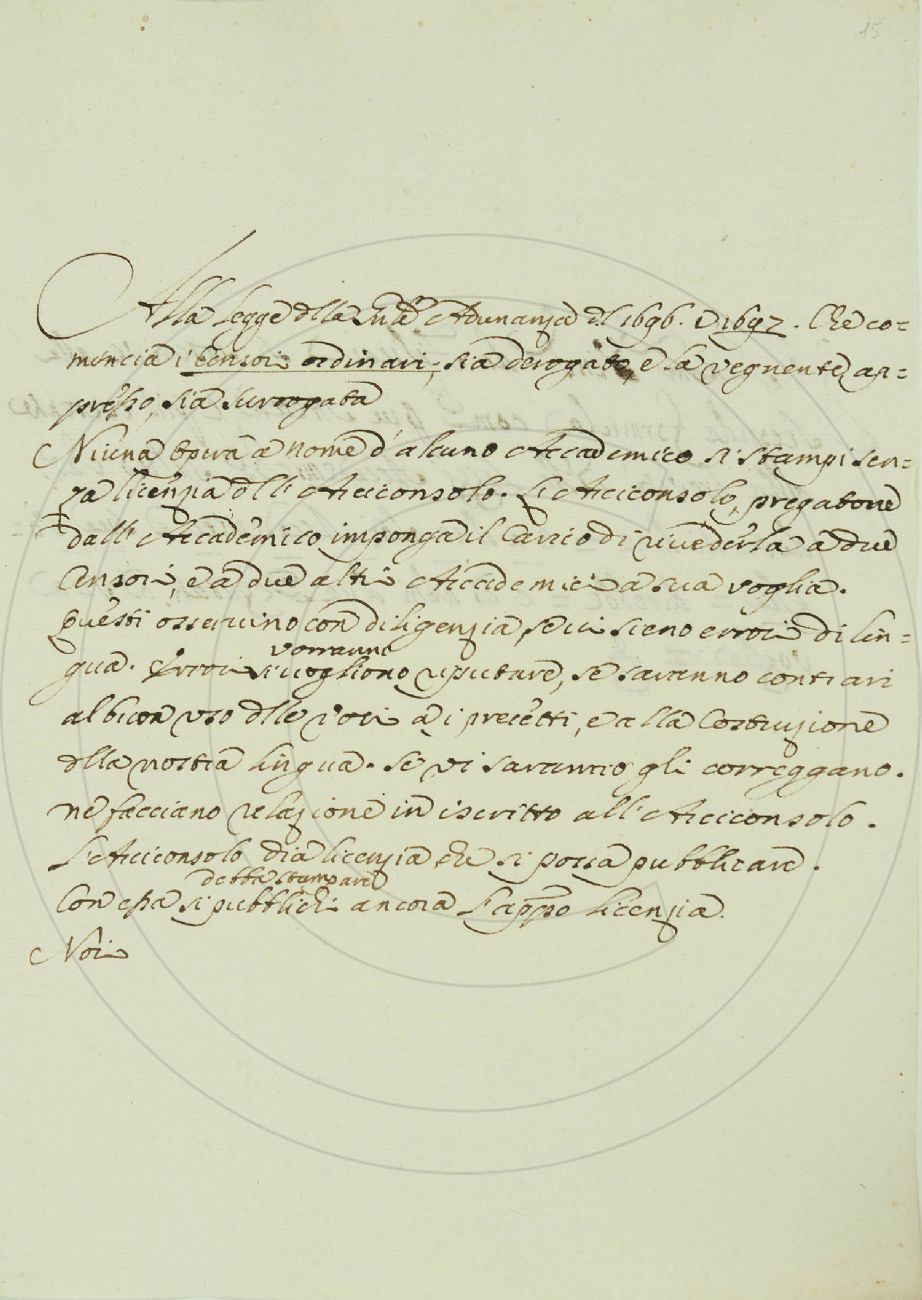 15
Alla Legge della Adunanza del 1696. e 1697. Che co=
mincia i Censori ordinari, sia derogato, e la vegnente ap=
presso, sia surrogata
Niuna Opera a nome d'alcuno Accademico si stampi sen=
za licenzia dell'Arciconsolo. L'Arciconsolo, pregatone
dall'Accademico imponga il Carico di rivederla a due
Censori, e a due altri Accademici a sua voglia.
Questi osservino con diligenzia, se vi sieno errori di Lin=
gua. Errori si vogliono vorranno riputare, se saranno contrari
al buon uso delle voci a i precetti, e alla Costruzione
della nostra Lingua. Se vi saranno gli correggano.
ne facciano relazione in iscritto all'Arciconsolo.
L'Arciconsolo dia licenzia che si possa pubblicare.
debba stampare
Con essa si pubblichi ancora l'appo Licenzia.
Noi